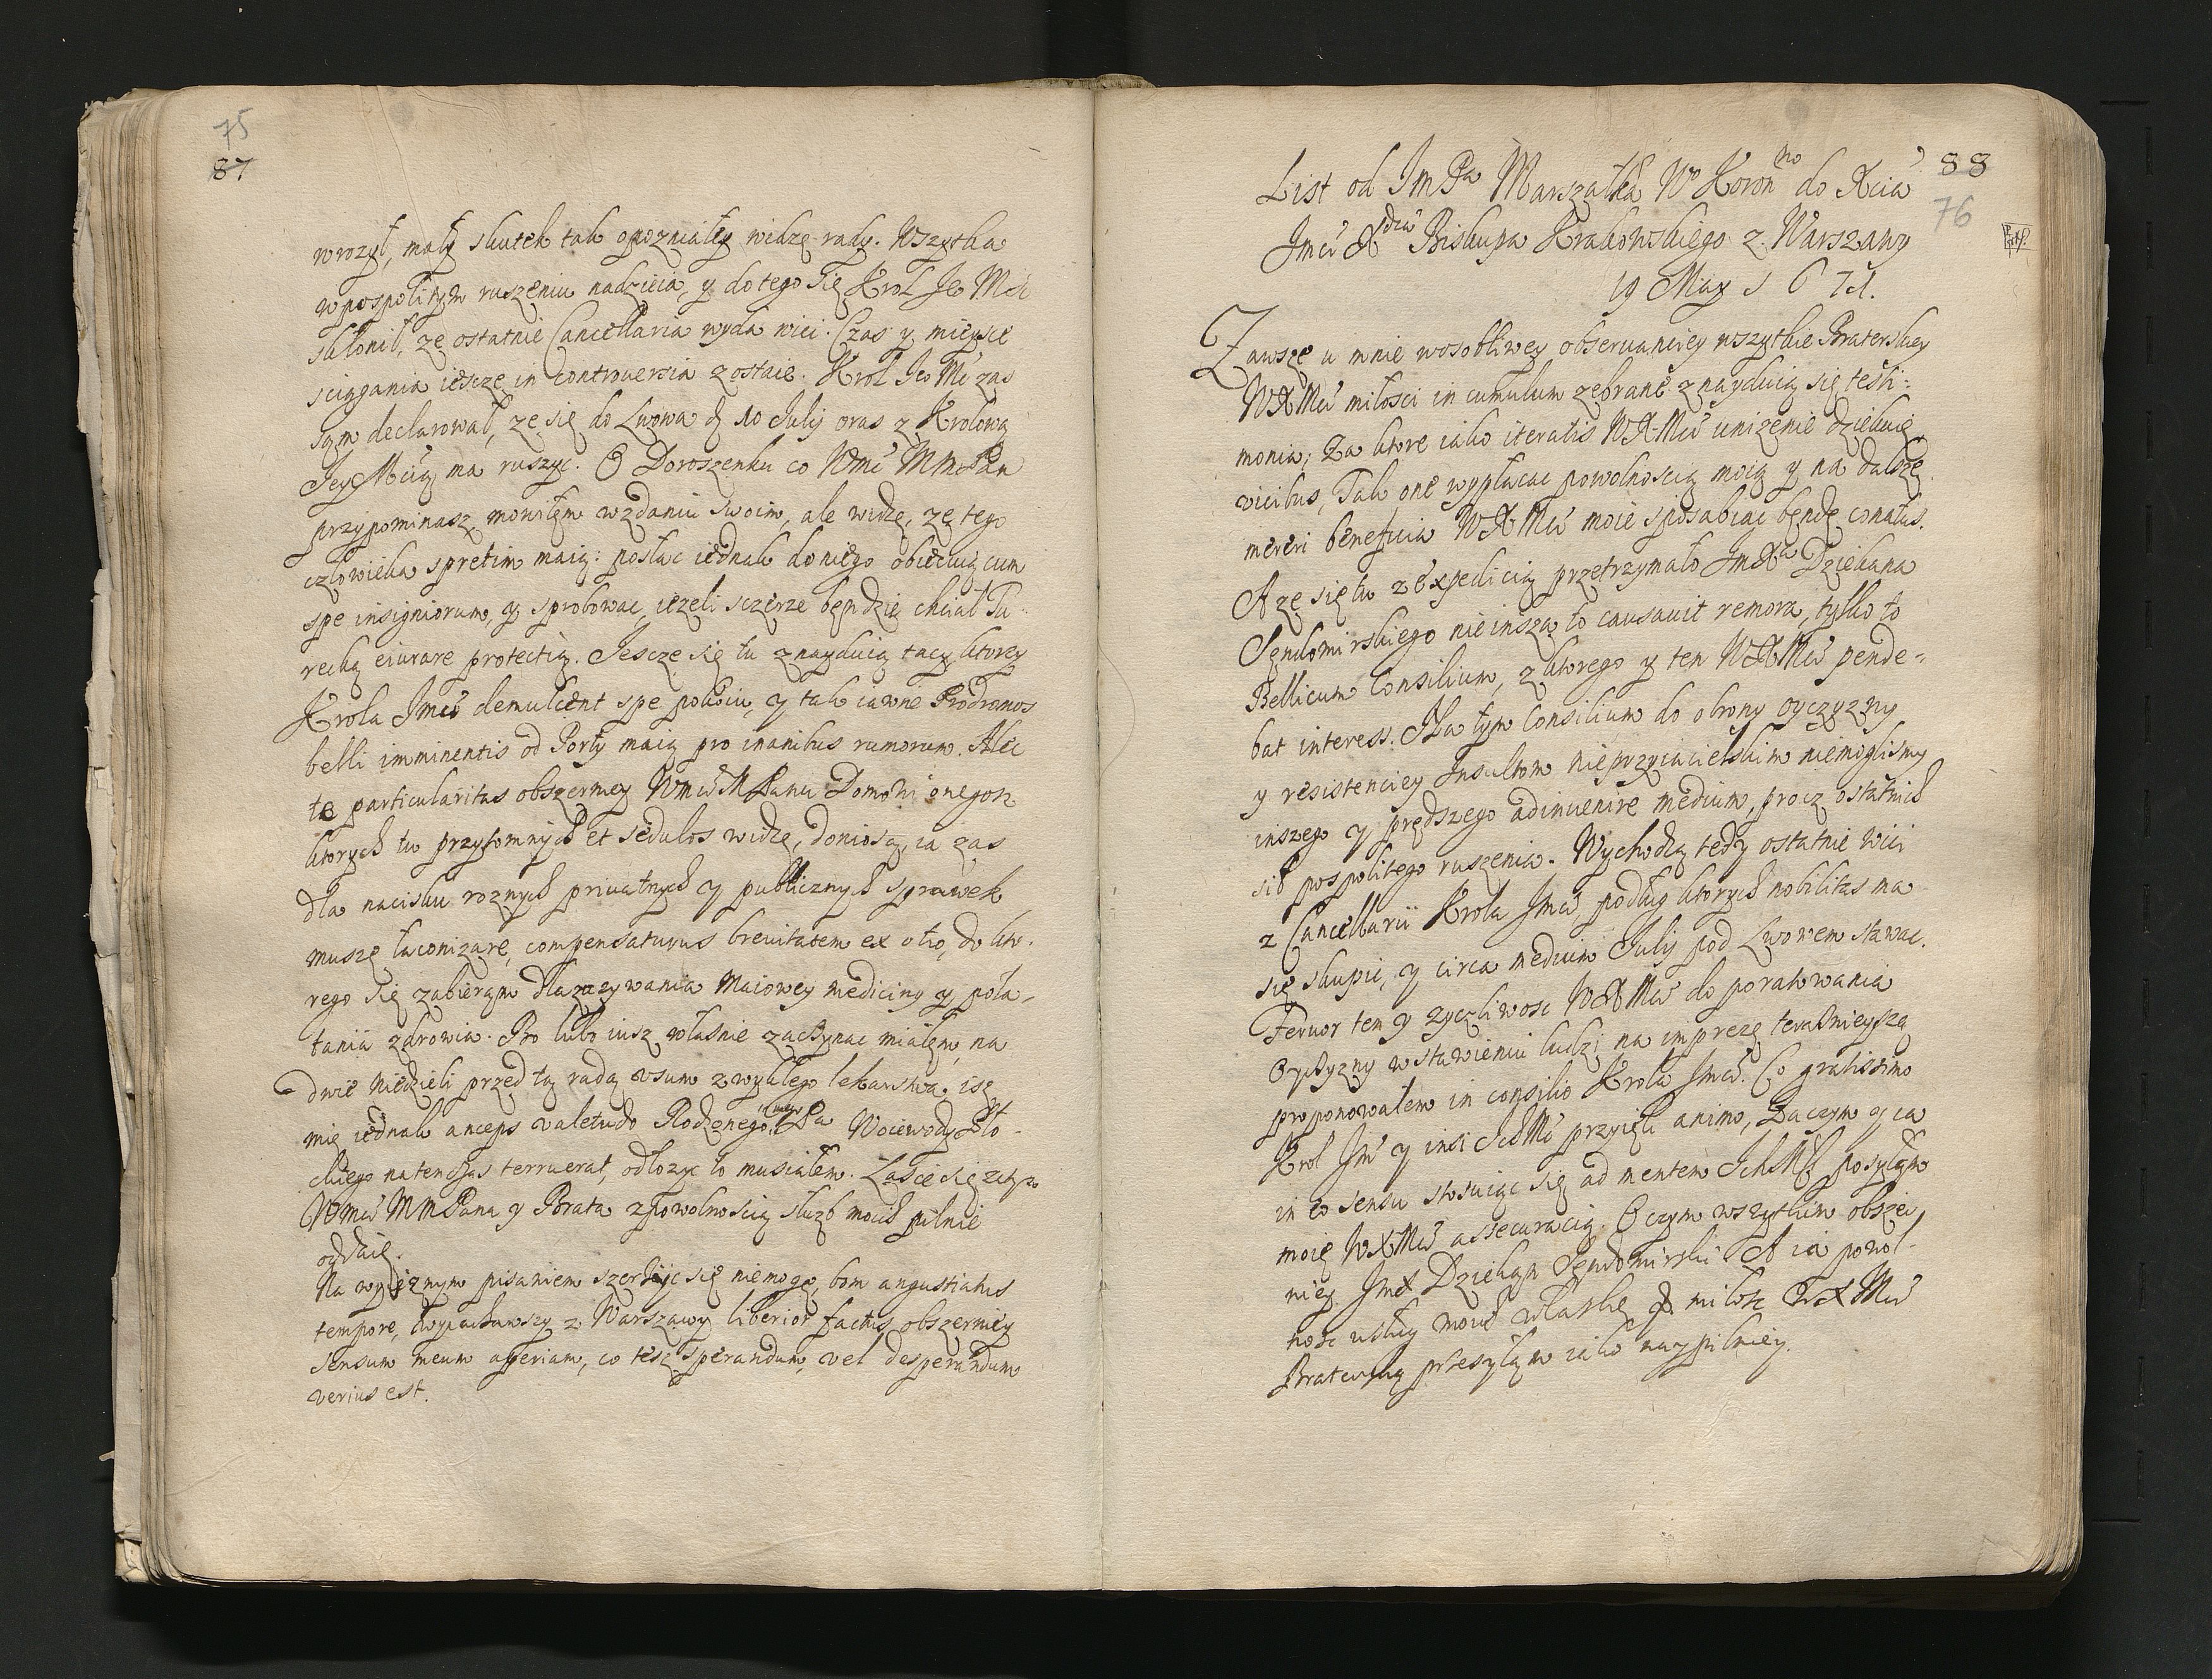 75
87
wrozył, mały skutek tak opozniałey widzę rady. Wszytka
w pospolitym ruszeniu nadzieia, y do tego się Krol Jeo Mść
skłonił, ze ostatnie Cancellaria wyda wici. Czas y mieysce
sciągania iescze in controversia zostaie. Krol Jeo Mć zas
sąm declarował, ze się do Lwowa d. 10 Julij oras z Krolową
Jey Mcią ma ruszyc. O Doroszenku co Wmć M M Pan
przypominasz mowiłem w zdaniu swoim, ale widzę, ze tego
człowieka spretim maią: posłac iednak do niego obiecuią cum
spe insigniorum, y sprobowac, iezeli sczerze będzie chciał Tu-
recką eiurare protectią. Jescze się tu znayduią tacy, ktorzy
Krola Jmci demulcent spe pokoiu, y tak iawne Prodromos
belli imminentis od Porty maią pro inanibus rumorum. Alec
te particularitas obszerniey Wmci M Panu Domowi onegoz
ktorych tu przytomnych et sedulos widzę, doniosą, ia zas
dla nacisku roznych priuatnych y publicznych sprawek
muszę laconizare, compensaturus breuitatem ex otio, do kto-
rego się zabierąm dla zazywania Maiowey mediciny y poła-
tania zdrowia. Bo lubo iusz własnie zaczynac miałem, na
dwie Niedzieli przed tą radą usum zwykłego lekarstwa, isz
mię iednak anceps valetudo Rodzonego Pa Woiewody Pło-
ckiego natenczas terruerat, odłozyc to musiałem. Łasce się zatym
Wmci M M Pana y Brata z powolnoscią słuzb moich pilnie
oddaię.
Na wyieznym pisaniem szerzyc się niemogę, bom angustiatus
tempore, wyiachawszy z Warszawy liberior factus obszerniey
sensum meum aperiam, co tesz sperandum, vel desperandum
verius est.
88
76
List od Jm Pa Marszałka Wo Koronno do Xcia
Jmci Xdza Biskupa Krakowskiego z Warszawy
19 May 1671.
Zawsze u mnie w osobliwey obseruanciey wszytkie Braterskiey
WXMci miłosci in cumulum zebrane znayduią się testi-
monia; Za ktore iako iteratis WXMci unizenie dziekuię
vicibus, Tak one wypłacac powolnoscią moią y na dalsze
mereri beneficia WXMci moie sposabiac będę conatus.
A ze się tu z expedicią przetrzymało Jm Xa Dziekana
Sendomirskiego nie insza to causauit remora, tylko to
Bellicum Consilium, z ktorego y ten WXMci pende-
bat interess. Na tym Consilium do obrony oyczyzny
y resistenciey Insultom nieprzyiacielskim niemoglismy
inszego y prędszego adinuenire medium, procz ostatnich
sił pospolitego ruszenia. Wychodzą tedy ostatnie Wici
z Cancellarii Krola Jmci, podług ktorych nobilitas ma
się skupic, y circa medium Julij pod Lwowem stawac.
Feruor ten y zyczliwosc WXMci do poratowania
Oyczyzny w stawieniu ludzi na imprezę teraznieyszą
proponowałem in consilio Krola Jmci. Co gratissimo
Krol Jm y insi IchMć przyięli animo, Zaczym y ia
in eo sensu stosuiąc się ad mentem Ich Mć posyłąm
moię WXMci assecuracią. O czym wszytkim obszer-
niey Jmx Dziekąn Sendomirski. A ia powol-
nosc usług moich w łaskę y miłosc WX Mci
Braterską przesyłąm iako naypilniey.